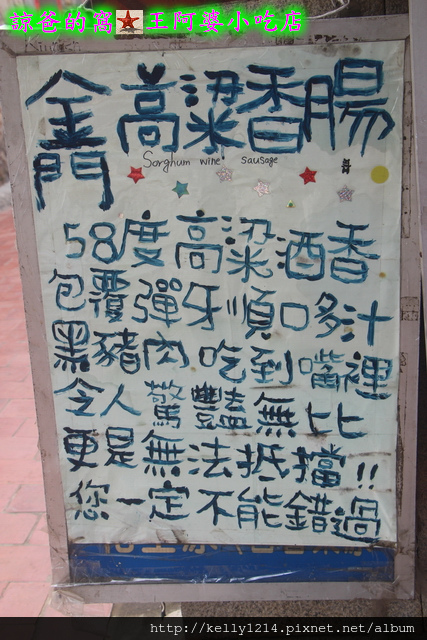 諒爸的窩★王阿婆小吃店
金門高梁香腸
Sorghum wine sausage
58度高梁酒香
包覆彈牙順口多汁
黑豬肉吃到嘴裡
令人驚豔無比
更是無法抵擋!!
您一定不能錯過
http://kelly1214.pixnet.net/album